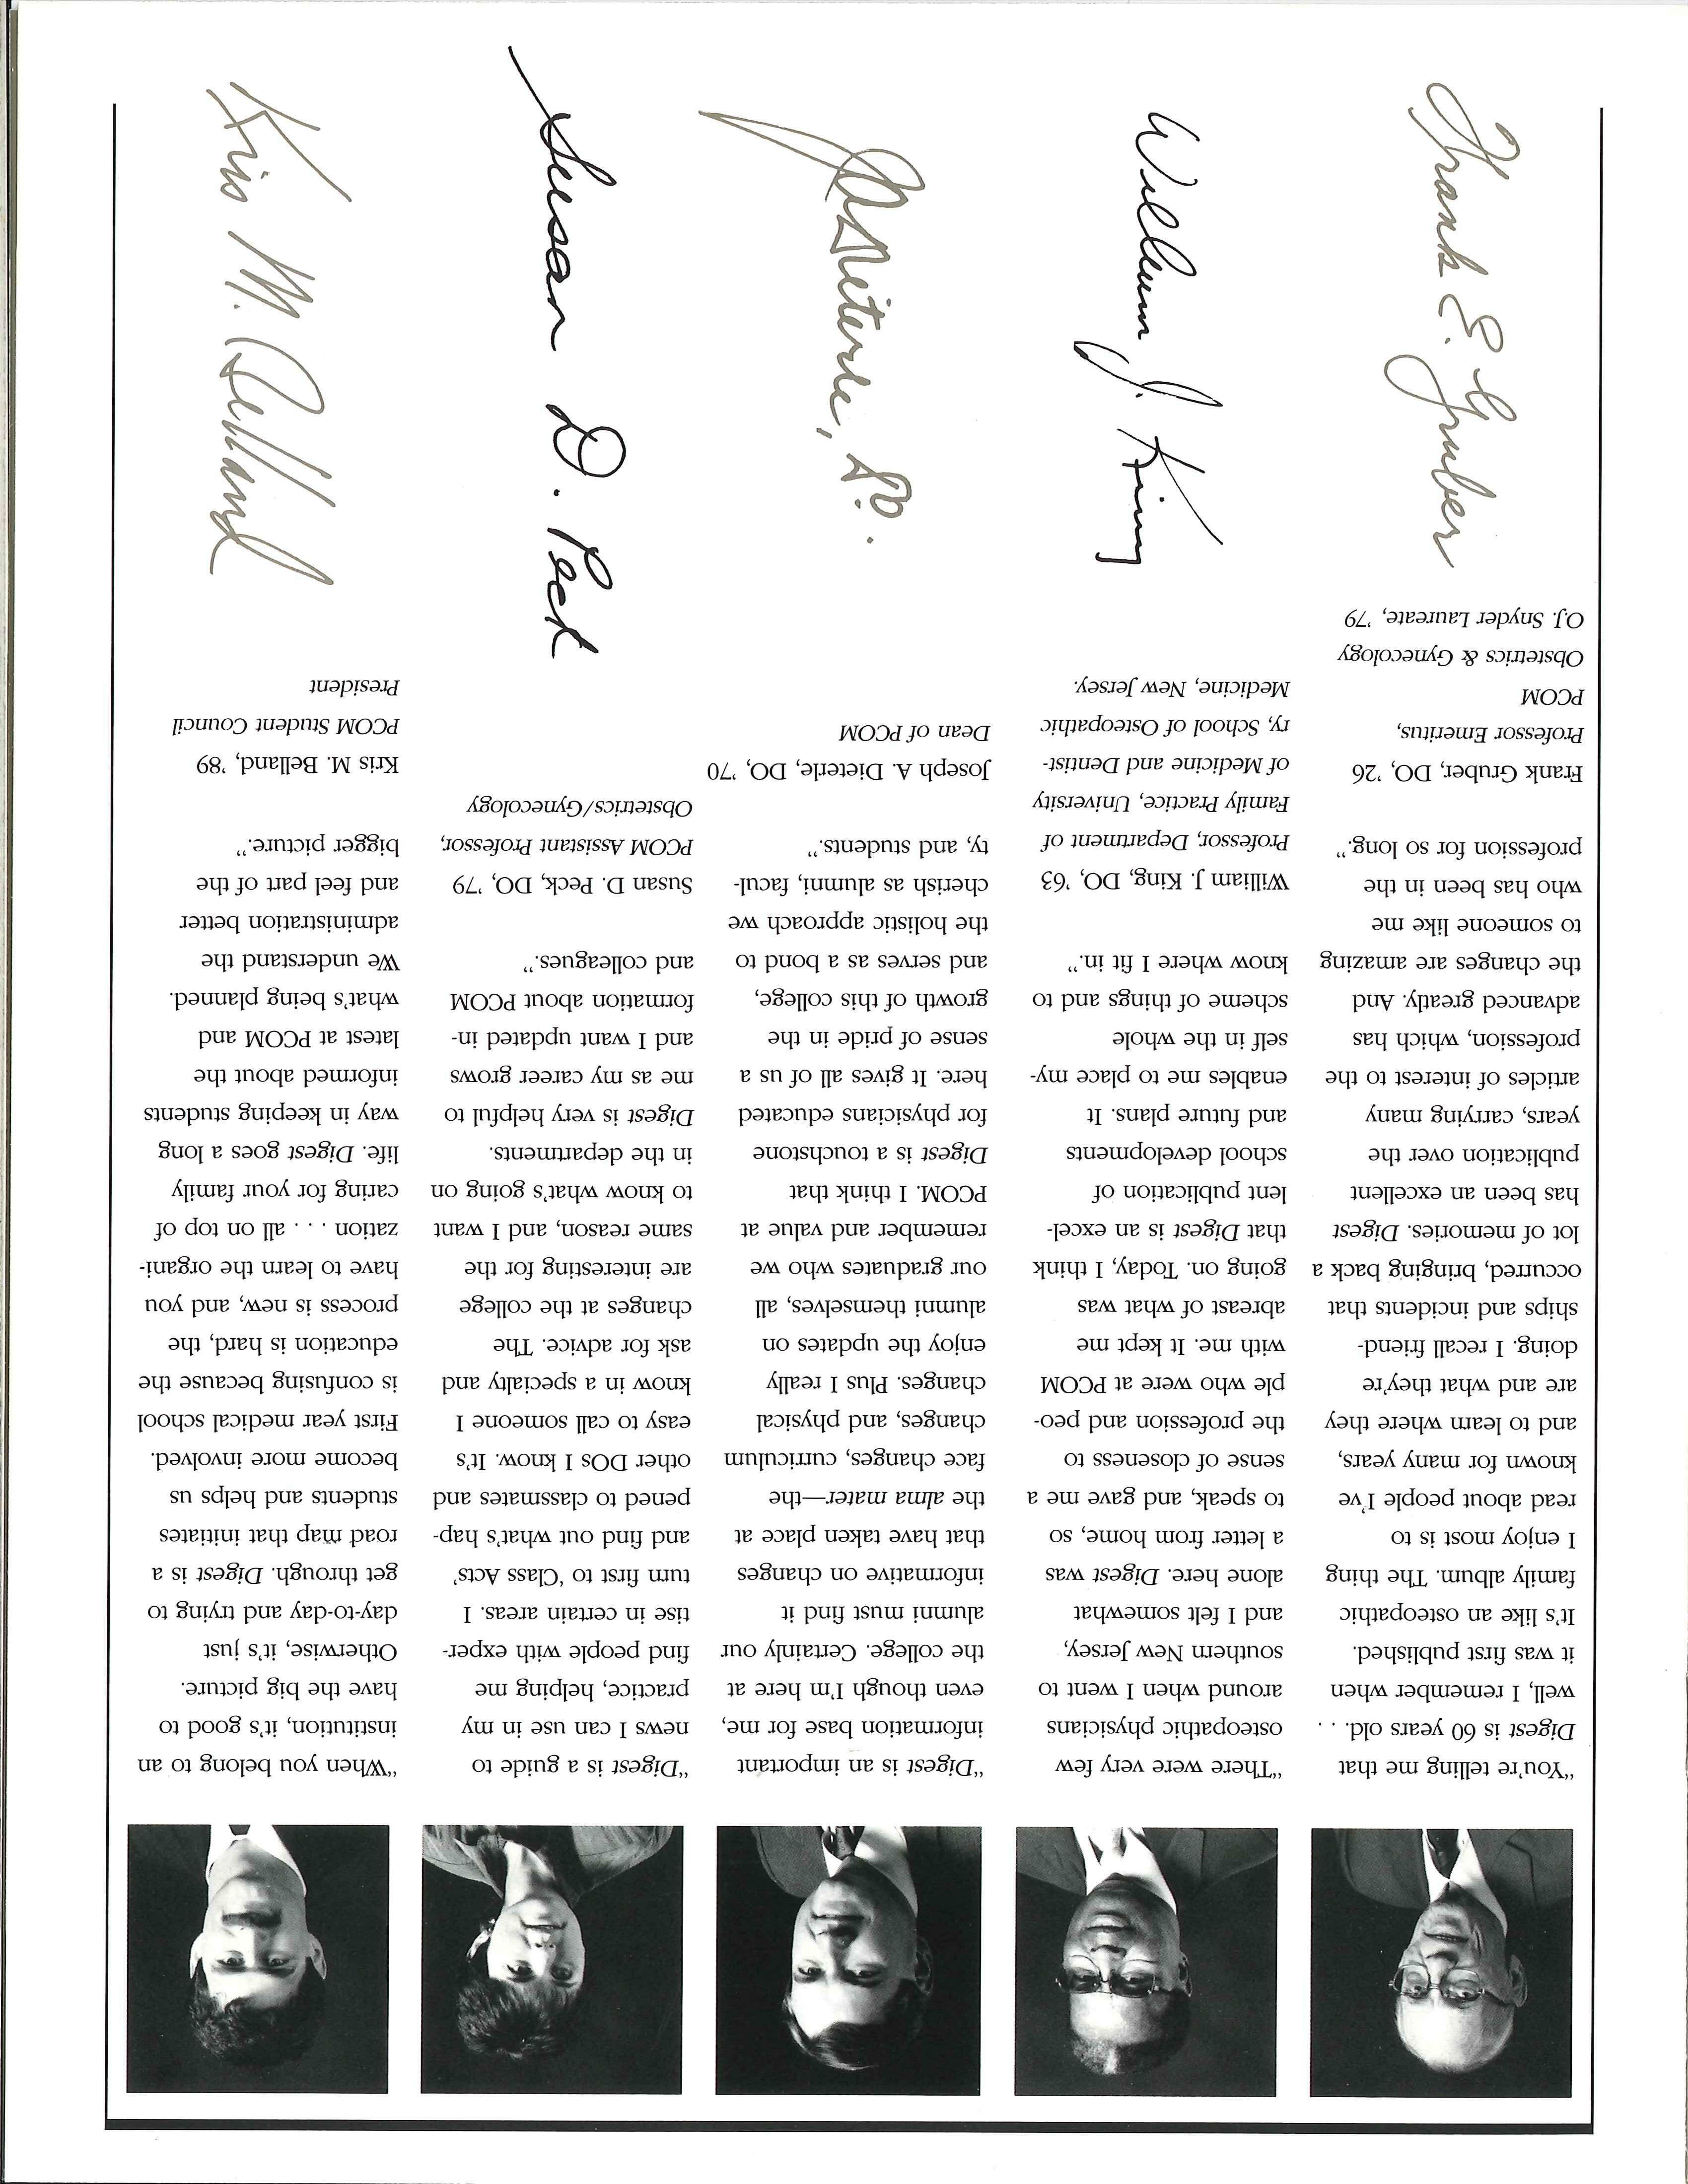 "You're telling me that
Digest is 60 years old. . .
well, I remember when
it was first published.
It's like an osteopathic
family album. The thing
I enjoy most is to
read about people I've
known for many years,
and to learn where they
are and what they're
doing. I recall friend-
ships and incidents that
occurred, bringing back a
lot of memories. Digest
has been an excellent
publication over the
years, carrying many
articles of interest to the
profession, which has
advanced greatly. And
the changes are amazing
to someone like me
who has been in the
profession for so long."
Frank Gruber, DO, '26
Professor Emeritus,
PCOM
Obstetrics & Gynecology
O.J. Snyder Laureate, '79
Frank E. Gruber
"There were very few
osteopathic physicians
around when I went to
southern New Jersey,
and I felt somewhat
alone here. Digest was
a letter from home, so
to speak, and gave me a
sense of closeness to
the profession and peo-
ple who were at PCOM
with me. It kept me
abreast of what was
going on. Today, I think
that Digest is an excel-
lent publication of
school developments
and future plans. It
enables me to place my-
self in the whole
scheme of things and to
know where I fit in."
William J. King, DO, '63
Professor, Department of
Family Practice, University
of Medicine and Dentist-
ry, School of Osteopathic
Medicine, New Jersey.
William J. King
"Digest is an important
information base for me,
even though I'm here at
the college. Certainly our
alumni must find it
informative on changes
that have taken place at
the alma mater—the
face changes, curriculum
changes, and physical
changes. Plus I really
enjoy the updates on
alumni themselves, all
our graduates who we
remember and value at
PCOM. I think that
Digest is a touchstone
for physicians educated
here. It gives all of us a
sense of pride in the
growth of this college,
and serves as a bond to
the holistic approach we
cherish as alumni, facul-
ty, and students."
Joseph A. Dieterle, DO, '70
Dean of PCOM
JADieterle, DO.
"Digest is a guide to
news I can use in my
practice, helping me
find people with exper-
tise in certain areas. I
turn first to 'Class Acts'
and find out what's hap-
pened to classmates and
other DOs I know. It's
easy to call someone I
know in a specialty and
ask for advice. The
changes at the college
are interesting for the
same reason, and I want
to know what's going on
in the departments.
Digest is very helpful to
me as my career grows
and I want updated in-
formation about PCOM
and colleagues."
Susan D. Peck, DO, '79
PCOM Assistant Professor,
Obstetrics/Gynecology
Susan D. Peck
"When you belong to an
institution, it's good to
have the big picture.
Otherwise, it's just
day-to-day and trying to
get through. Digest is a
road map that initiates
students and helps us
become more involved.
First year medical school
is confusing because the
education is hard, the
process is new, and you
have to learn the organi-
zation . . . all on top of
caring for your family
life. Digest goes a long
way in keeping students
informed about the
latest at PCOM and
what's being planned.
We understand the
administration better
and feel part of the
bigger picture."
Kris M. Belland, '89
PCOM Student Council
President
Kris M. Belland